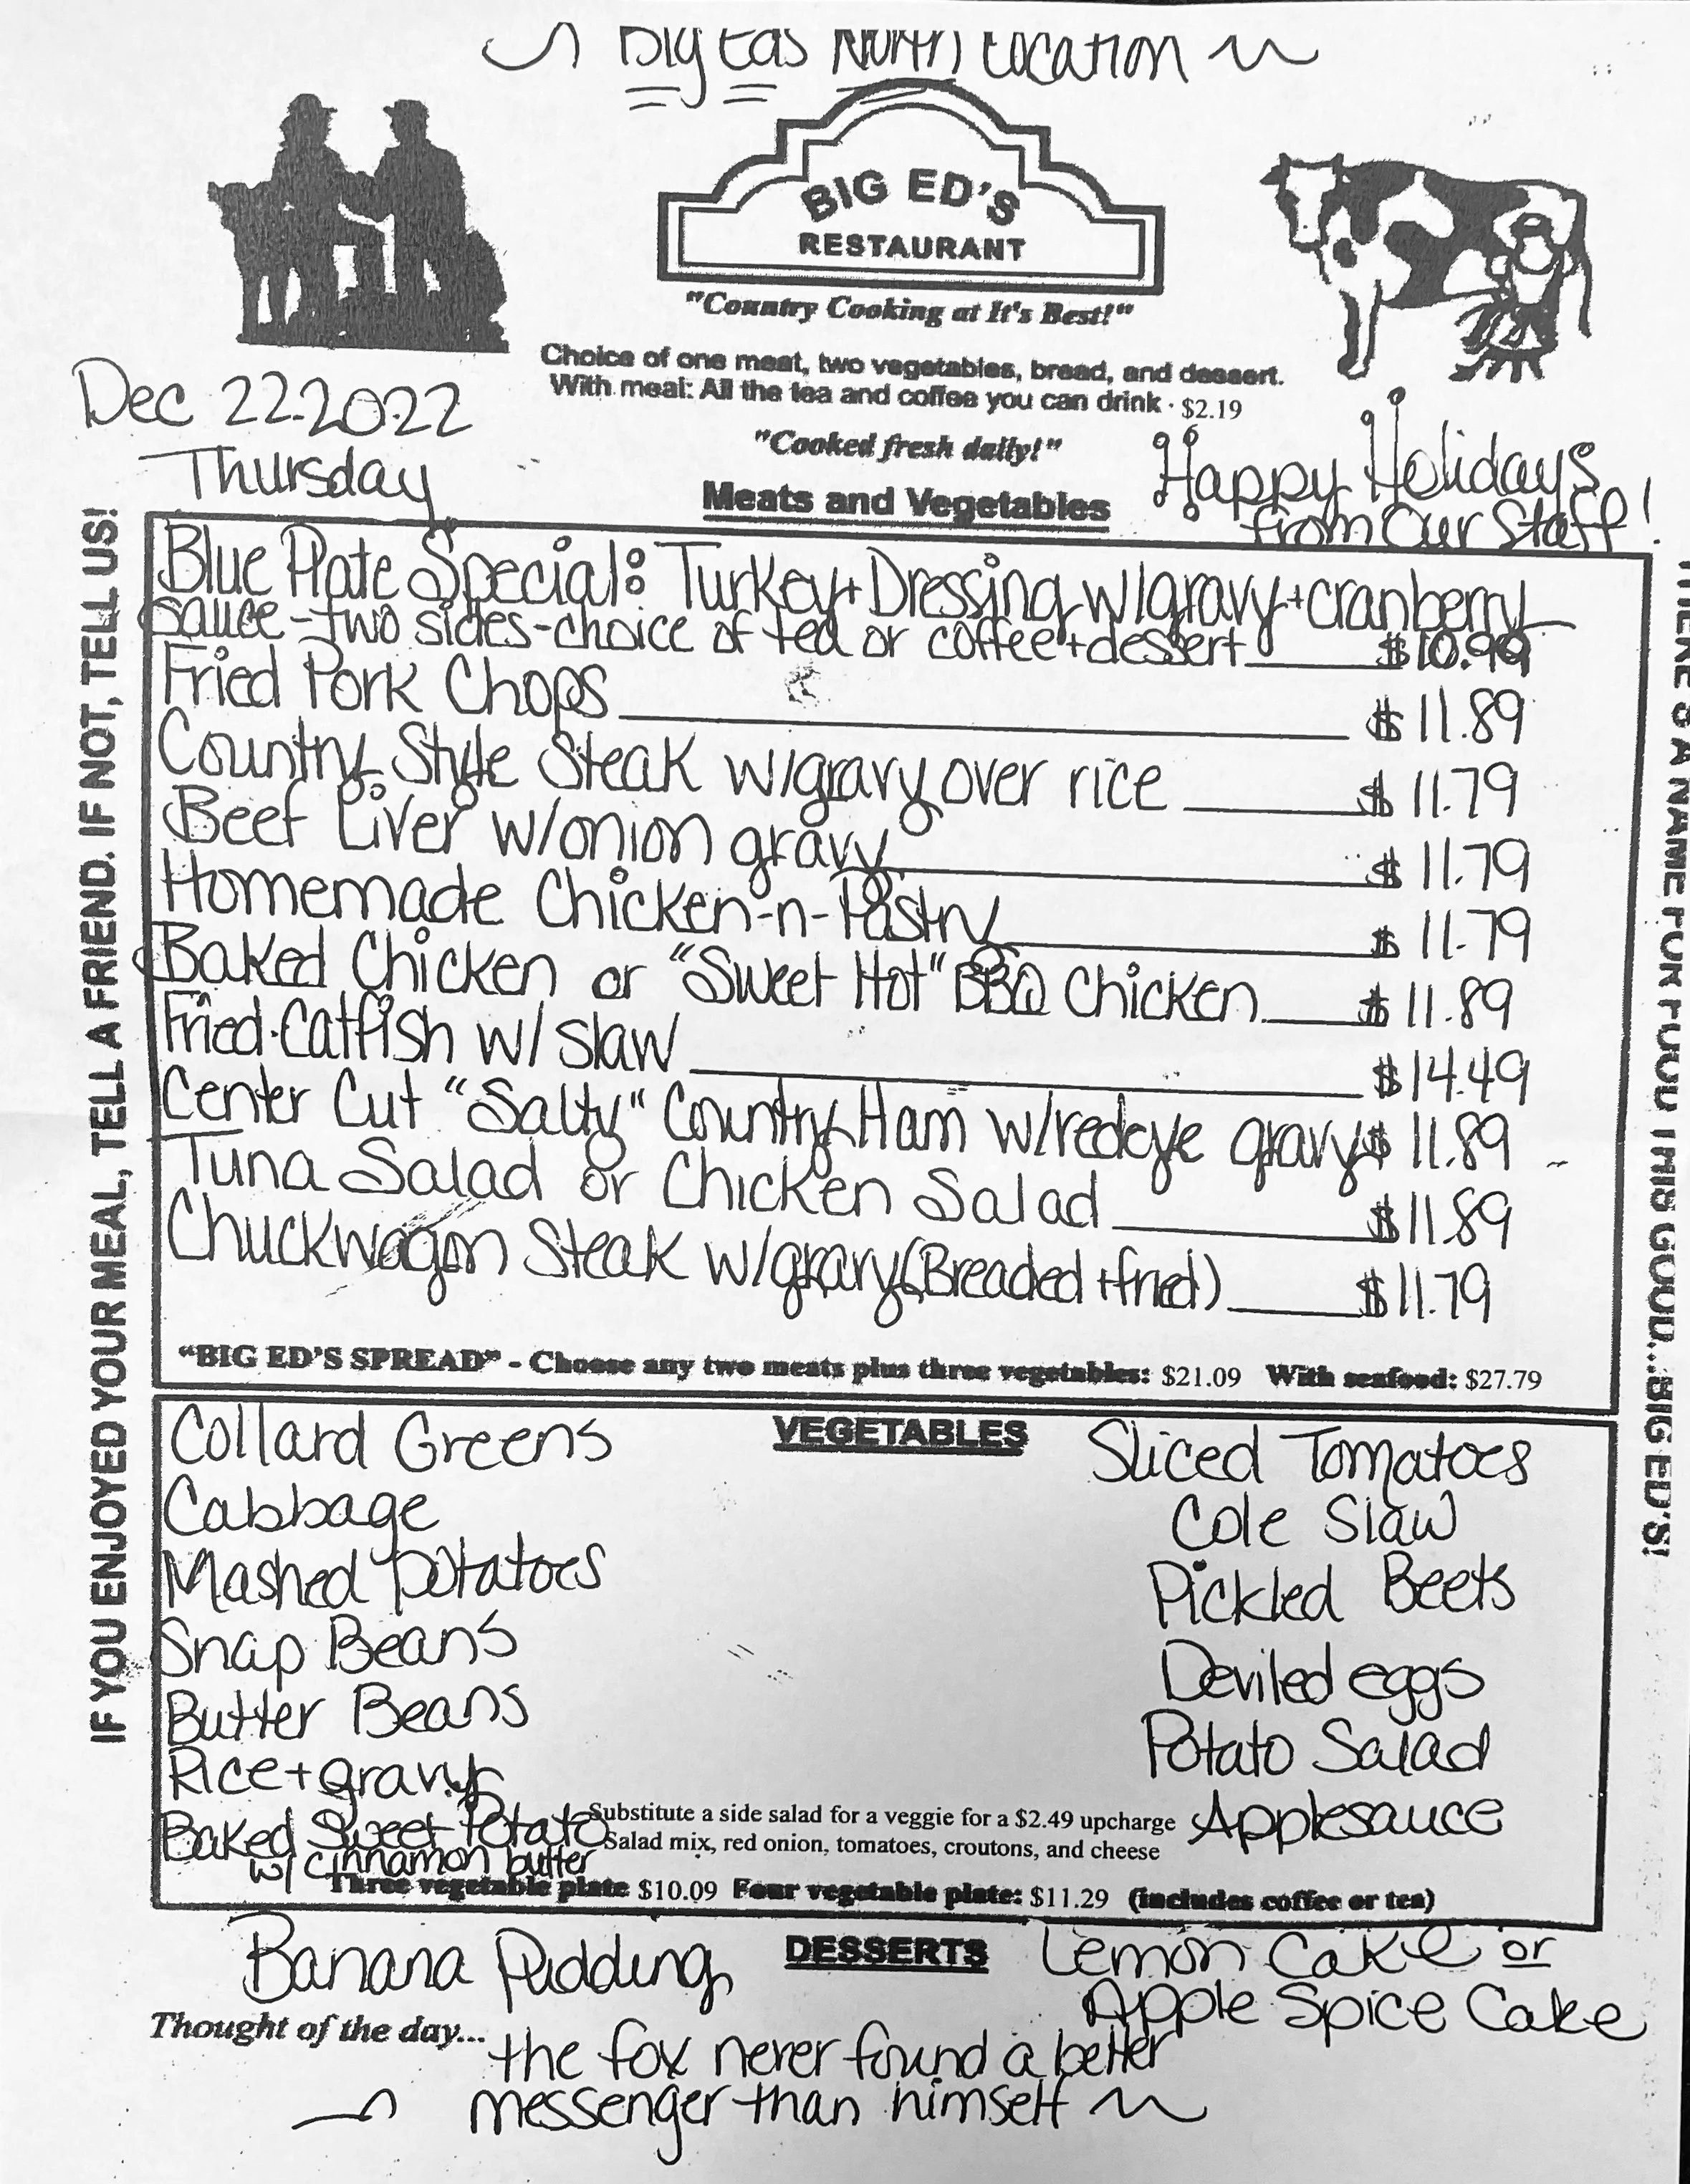 Big Eds North Location
BIG ED'S
RESTAURANT
"Country Cooking at It's Best!"
Choice of one meat, two vegetables, bread, and dessert.
With meal: All the tea and coffee you can drink · $2.19
Dec 22-2022
Thursday
"Cooked fresh daily!"
Happy Holidays
from Our Staff!
Meats and Vegetables
IF YOU ENJOYED YOUR MEAL, TELL A FRIEND. IF NOT, TELL US!
THERE'S A NAME FOR FOOD THIS GOOD...BIG ED'S!
Blue Plate Special: Turkey + Dressing w/gravy + cranberry
sauce - two sides - choice of tea or coffee + dessert $10.99
Fried Pork Chops $11.89
Country Style Steak w/gravy over rice $11.79
Beef Liver w/onion gravy $11.79
Homemade Chicken-n-Pastry $11.79
Baked Chicken or "Sweet Hot" BBQ Chicken $11.89
Fried Catfish w/ slaw $14.49
Center Cut "Salty" Country Ham w/redeye gravy $11.89
Tuna Salad or Chicken Salad $11.89
Chuckwagon Steak w/gravy (Breaded + fried) $11.79
"BIG ED'S SPREAD" - Choose any two meats plus three vegetables: $21.09 With seafood: $27.79
VEGETABLES
Collard Greens
Cabbage
Mashed Potatoes
Snap Beans
Butter Beans
Rice + gravy
Baked Sweet Potato
w/ cinnamon butter
Sliced Tomatoes
Cole Slaw
Pickled Beets
Deviled eggs
Potato Salad
Applesauce
Substitute a side salad for a veggie for a $2.49 upcharge
Salad mix, red onion, tomatoes, croutons, and cheese
Three vegetable plate $10.09 Four vegetable plate: $11.29 (includes coffee or tea)
DESSERTS
Banana Pudding
Lemon Cake or
Apple Spice Cake
Thought of the day...
the fox never found a better
messenger than himself